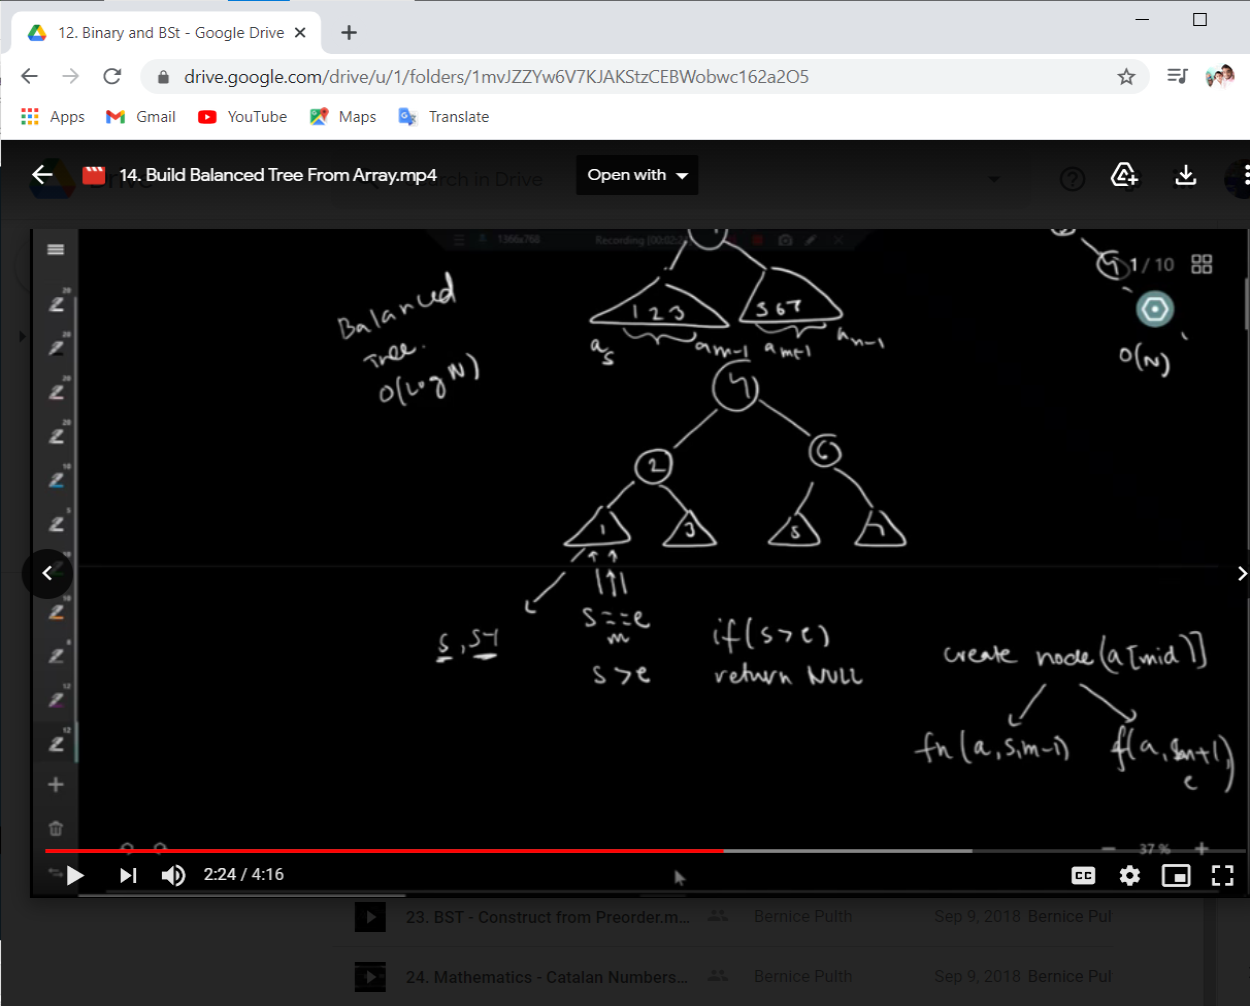 12. Binary and BSt - Google Drive
drive.google.com/drive/u/1/folders/1mvJZZYw6V7KJAKStzCEBWobwc162a2O5
Apps Gmail YouTube Maps Translate
14. Build Balanced Tree From Array.mp4
Search in Drive
Open with
1366x768 Recording [00:02:2
1 / 10
Balanced
Tree.
O(Log N)
1 2 3
5 6 7
a s
a m-1
a m+1
a n-1
4
O(N)
4
2
6
1
3
5
7
s , s-1
s==e
m
s > e
if(s>e)
return NULL
create node(a[mid)]
fn(a,s,m-1)
f(a, m+1,
e )
37 %
2:24 / 4:16
CC
23. BST - Construct from Preorder.m... Bernice Pulth Sep 9, 2018 Bernice Pul
24. Mathematics - Catalan Numbers... Bernice Pulth Sep 9, 2018 Bernice Pul